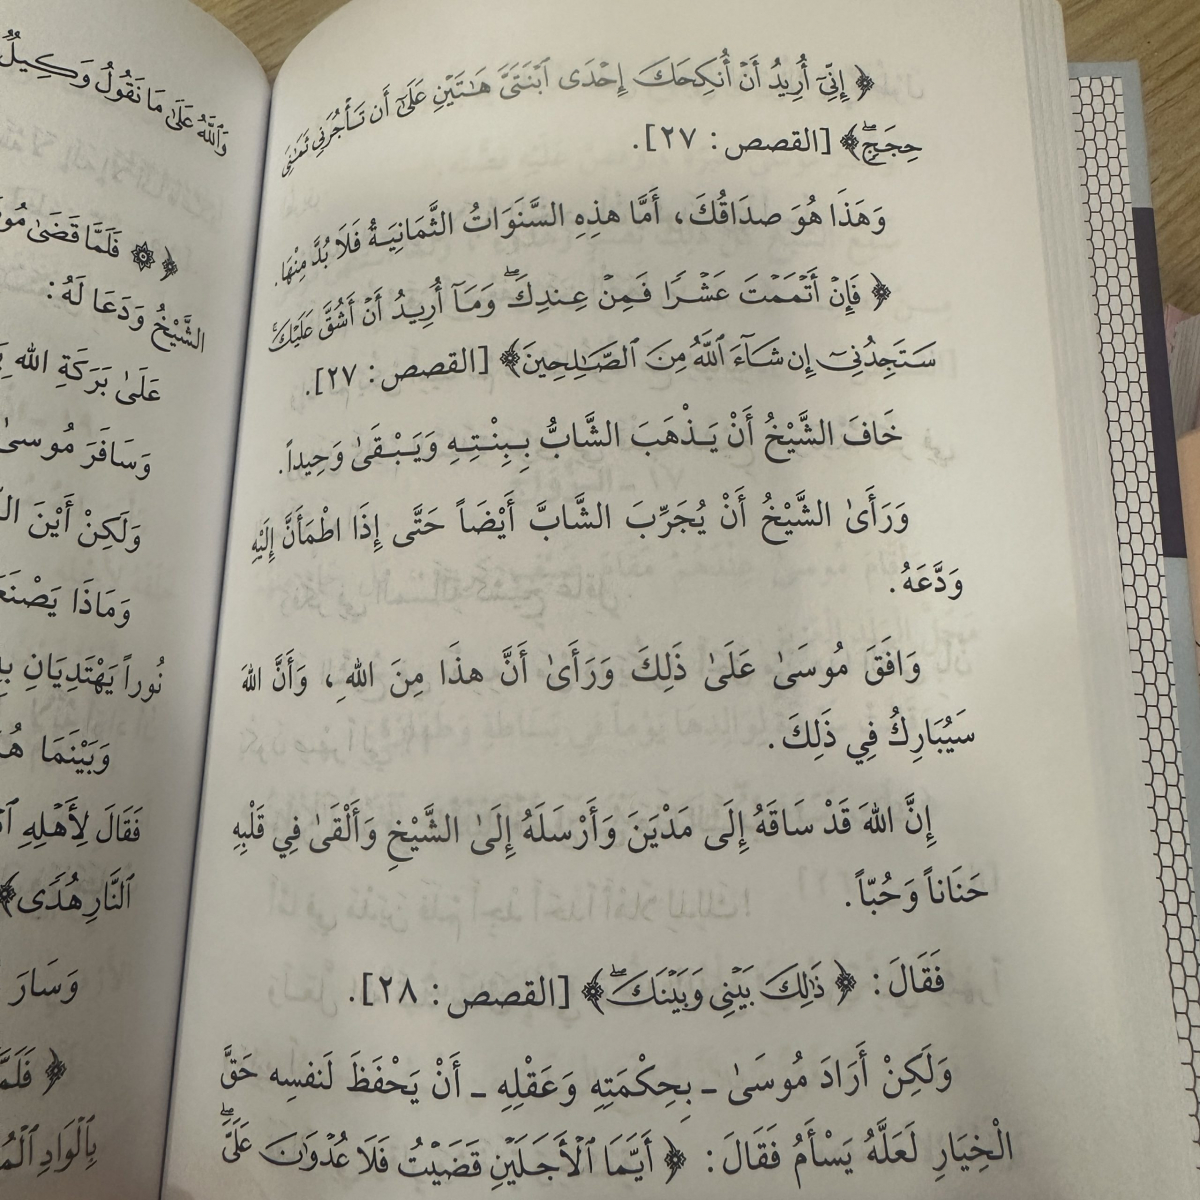 ﴿ إِنِّىٓ أُرِيدُ أَنْ أُنكِحَكَ إِحْدَى ٱبْنَتَىَّ هَـٰتَيْنِ عَلَىٰٓ أَن تَأْجُرَنِى ثَمَـٰنِىَ
حِجَجٍۖ﴾ [القصص: ٢٧].
وَهَذَا هُوَ صدَاقُكَ، أَمَّا هذِهِ السَّنَوَاتُ الثَّمَانِيَةُ فَلَا بُدَّ مِنْهَا.
﴿ فَإِنْ أَتْمَمْتَ عَشْرًا فَمِنْ عِندِكَۖ وَمَآ أُرِيدُ أَنْ أَشُقَّ عَلَيْكَۚ
سَتَجِدُنِىٓ إِن شَآءَ ٱللَّهُ مِنَ ٱلصَّـٰلِحِينَ﴾ [القصص: ٢٧].
خَافَ الشَّيْخُ أَنْ يَـذْهَبَ الشَّابُّ بِبِنْتِـهِ وَيَبْـقَىٰ وَحِيداً.
وَرَأَىٰ الشَّيْخُ أَنْ يُجَرِّبَ الشَّابَّ أَيْضَاً حَتَّى إِذَا اطْمَأَنَّ إِلَيْهِ
وَدَّعَهُ.
وَافَقَ مُوسَىٰ عَلَىٰ ذَلِكَ وَرَأَىٰ أَنَّ هذَا مِنَ اللهِ، وَأَنَّ اللهَ
سَيُبَارِكُ فِي ذَلِكَ.
إِنَّ اللهَ قَدْ سَاقَهُ إِلَى مَدْيَنَ وَأَرْسَلَهُ إِلَىٰ الشَّيْخِ وَأَلْقَىٰ فِي قَلْبِهِ
حَنَاناً وَحُبّاً.
فَقَالَ: ﴿ ذَٰلِكَ بَيْنِى وَبَيْنَكَۖ﴾ [القصص: ٢٨].
وَلَكِنْ أَرَادَ مُوسَىٰ ـ بِحِكْمَتِهِ وَعَقْلِهِ ـ أَنْ يَحْفَظَ لَنفسِه حَقَّ
الْخِيَارِ لَعَلَّهُ يَسْأَمُ فَقَالَ: ﴿ أَيَّمَا ٱلْأَجَلَيْنِ قَضَيْتُ فَلَا عُدْوَٰنَ عَلَىَّۖ
وَٱللَّهُ عَلَىٰ مَا نَقُولُ وَكِيلٌ
﴿ ۞ فَلَمَّا قَضَىٰ
الشَّيْخُ وَدَعَا لَهُ:
عَلَىٰ بَرَكَةِ الله
وَسَافَرَ مُوسىٰ
وَلَكِنْ أَيْنَ
وَمَاذَا
نُوراً يَهْتَدِيَانِ
وَبَيْنَمَا
فَقَالَ لِأَهْلِهِ
ٱلنَّارِ هُدًى﴾
وَسَارَ
﴿
بِٱلْوَادِ